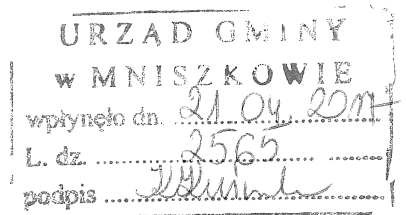 URZĄD GMINY
w MNISZKOWIE
wpłynęło dn. 21 04. 2017
L. dz. 2565
podpis